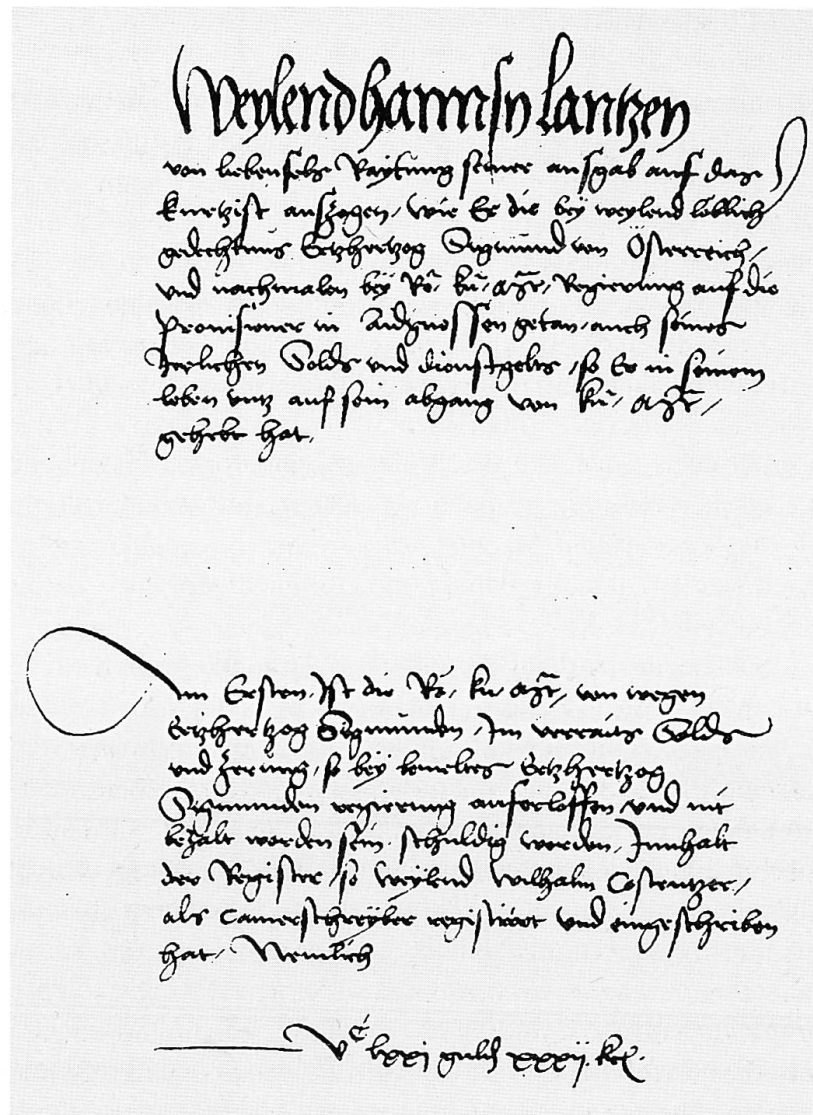 Weylend hannsn lantzen
von liebenfels Raytung seiner ausgab auf das
kurtzist auszogen, wie Er die bey weylend löblich
gedechtnus Ertzhertzog Sigmund von Österreich,
und nachmalen bey Rö. kü. Mt. Regierung auf die
Provisioner in Aidgnossen getan, auch seines
Jerlichen Solds und dienstgelts, so Er in seinem
leben untz auf sein abgang von kü. Mt.
gehebt hat.
Im Ersten, Ist die Rö. kü. Mt. von wegen
Ertzhertzog Sigmunden, Im verraits Solds
und Zerung, so bey bemeltes Ertzhertzog
Sigmunden regierung auferloffen und nit
bezalt worden sein, schuldig worden, Innhalt
der Register, so weylend wilhalm Costentzer,
als Camerschreyber registriert und eingeschriben
hat, Nemlich
Vc lxxj guld xxxij. kr.